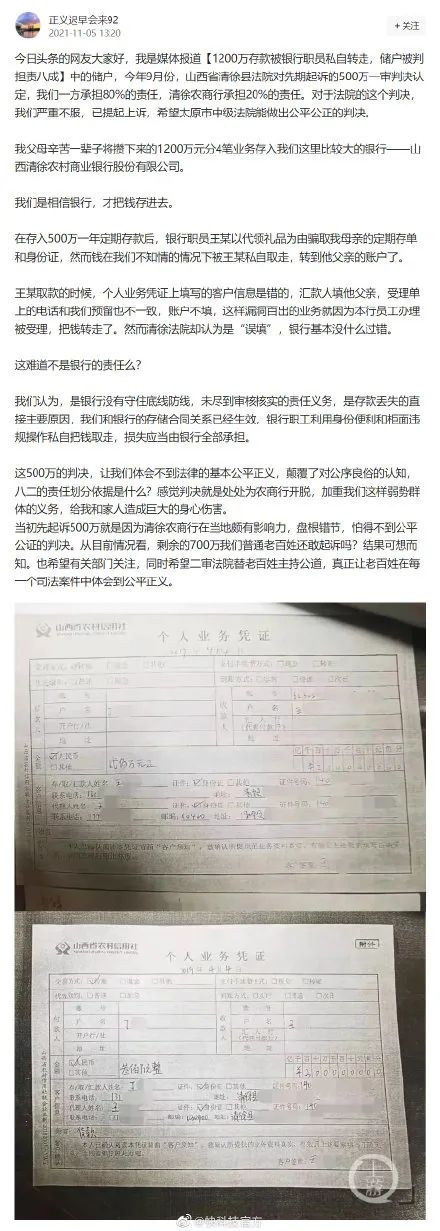 正义迟早会来92
2021-11-05 13:20
+ 关注
今日头条的网友大家好，我是媒体报道【1200万存款被银行职员私自转走，储户被判
担责八成】中的储户，今年9月份，山西省清徐县法院对先期起诉的500万一审判决认
定，我们一方承担80%的责任，清徐农商行承担20%的责任。对于法院的这个判决，
我们严重不服，已提起上诉，希望太原市中级法院能做出公平公正的判决.
我父母辛苦一辈子将攒下来的1200万元分4笔业务存入我们这里比较大的银行——山
西清徐农村商业银行股份有限公司。
我们是相信银行，才把钱存进去。
在存入500万一年定期存款后，银行职员王某以代领礼品为由骗取我母亲的定期存单
和身份证，然而钱在我们不知情的情况下被王某私自取走，转到他父亲的账户了。
王某取款的时候，个人业务凭证上填写的客户信息是错的，汇款人填他父亲，受理单
上的电话和我们预留也不一致，账户不填，这样漏洞百出的业务就因为本行员工办理
被受理，把钱转走了。然而清徐法院却认为是“误填”，银行基本没什么过错。
这难道不是银行的责任么？
我们认为，是银行没有守住底线防线，未尽到审核核实的责任义务，是存款丢失的直
接主要原因，我们和银行的存储合同关系已经生效，银行职工利用身份便利和柜面违
规操作私自把钱取走，损失应当由银行全部承担。
这500万的判决，让我们体会不到法律的基本公平正义，颠覆了对公序良俗的认知，
八二的责任划分依据是什么？感觉判决就是处处为农商行开脱，加重我们这样弱势群
体的义务，给我和家人造成巨大的身心伤害。
当初先起诉500万就是因为清徐农商行在当地颇有影响力，盘根错节，怕得不到公平
公证的判决。从目前情况看，剩余的700万我们普通老百姓还敢起诉吗？结果可想而
知。也希望有关部门关注，同时希望二审法院替老百姓主持公道，真正让老百姓在每
一个司法案件中体会到公平正义。
山西省农村信用社
个人业务凭证
账号
户名
开户行/社
地址
人民币
其他
存/取/汇款人姓名
证件
身份证
其他
证件号码
联系电话
地址
代理人姓名
联系电话
邮编
地址
山西省农村信用社
附件
个人业务凭证
2019年4月4日
账号
户名
开户行/社
地址
人民币
其他
存/取/汇款人姓名
证件
身份证
其他
证件号码
联系电话
地址
代理人姓名
联系电话
邮编
地址
客户签章
@快科技官方